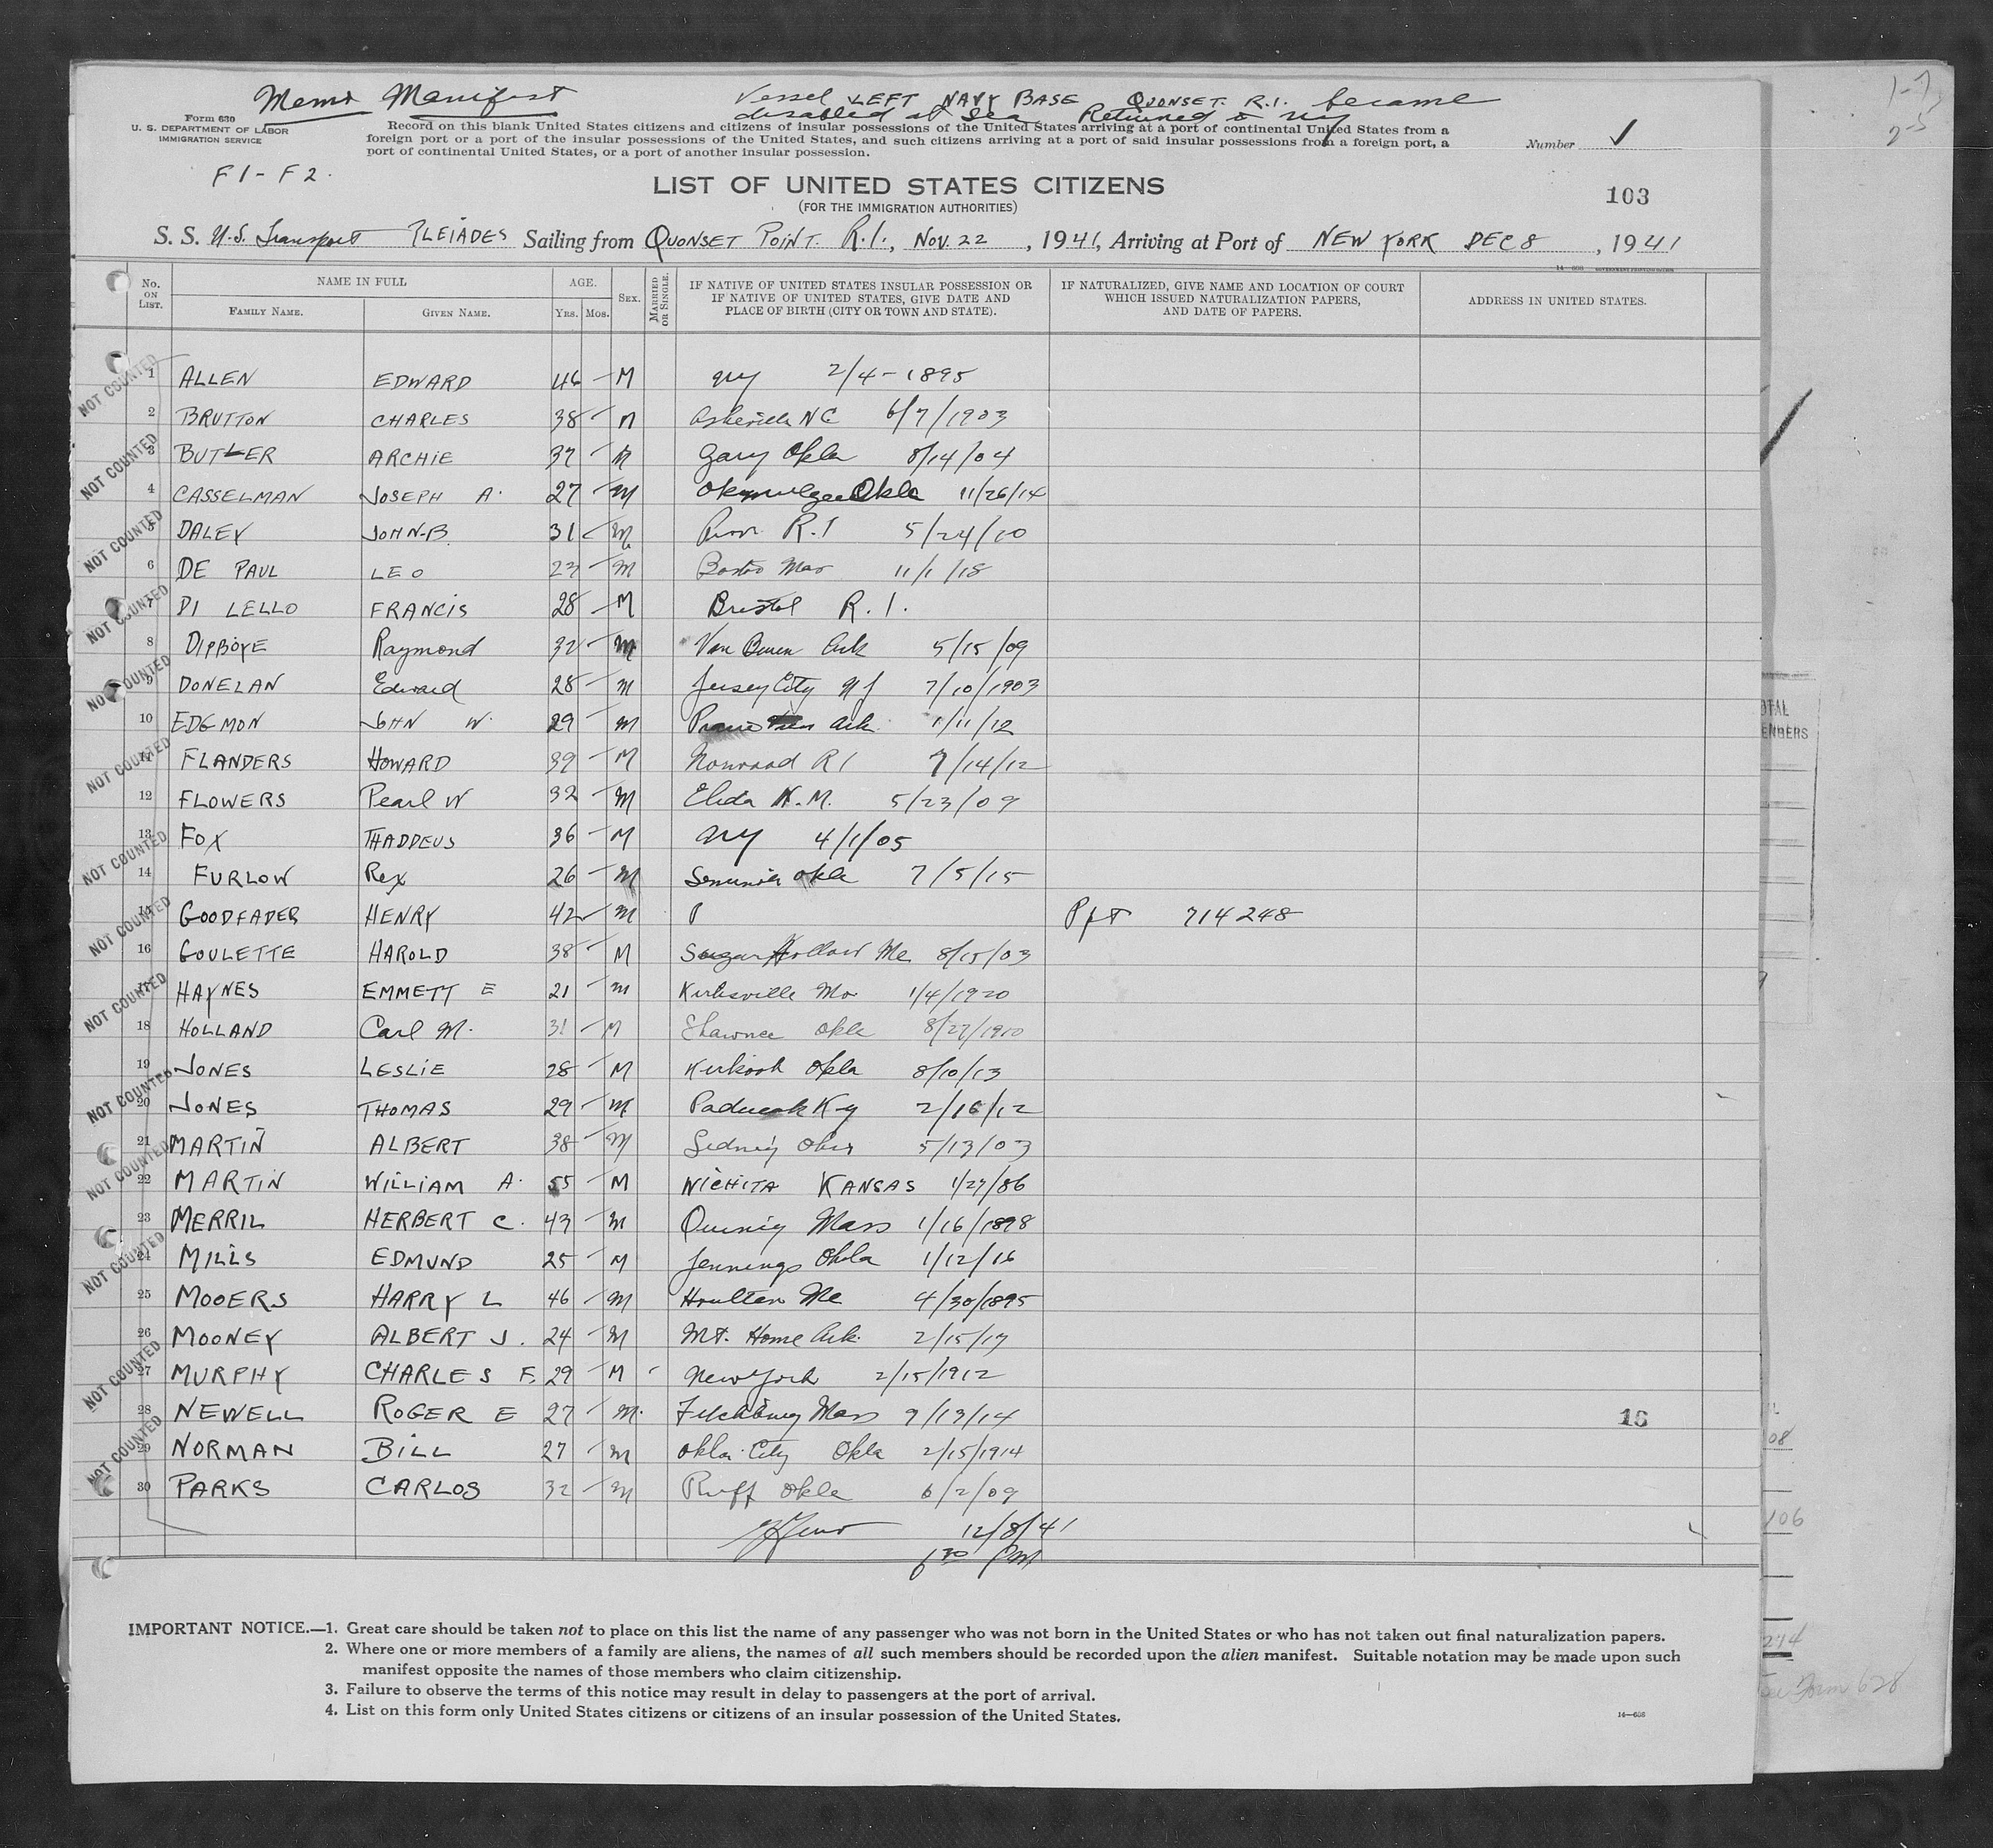 Memo Manifest
Vessel LEFT NAVY BASE QUONSET. R.I. became
disabled at Sea Returned to NY
Form 630
U. S. DEPARTMENT OF LABOR
IMMIGRATION SERVICE
F1-F2.
Record on this blank United States citizens and citizens of insular possessions of the United States arriving at a port of continental United States from a
foreign port or a port of the insular possessions of the United States, and such citizens arriving at a port of said insular possessions from a foreign port, a
port of continental United States, or a port of another insular possession.
Number ✓
1-7
2-5
LIST OF UNITED STATES CITIZENS
(FOR THE IMMIGRATION AUTHORITIES)
103
S. S. U.S. Transport PLEIADES Sailing from QUONSET POINT. R.I., NOV. 22, 1941, Arriving at Port of NEW YORK DEC 8, 1941
No. ON LIST.
NAME IN FULL
FAMILY NAME.
GIVEN NAME.
AGE.
YRS. MOS.
SEX.
MARRIED OR SINGLE.
IF NATIVE OF UNITED STATES INSULAR POSSESSION OR
IF NATIVE OF UNITED STATES, GIVE DATE AND
PLACE OF BIRTH (CITY OR TOWN AND STATE).
IF NATURALIZED, GIVE NAME AND LOCATION OF COURT
WHICH ISSUED NATURALIZATION PAPERS,
AND DATE OF PAPERS.
ADDRESS IN UNITED STATES.
1 ALLEN EDWARD 46 M NY 2/4-1895
2 BRUTTON CHARLES 38 M Asheville NC 6/7/1903
3 BUTLER ARCHIE 37 M Gary Okla 8/14/04
4 CASSELMAN JOSEPH A. 27 M Okmulgee Okla 11/26/14
5 DALEY JOHN-B. 31 M Prov. R.I 5/24/10
6 DE PAUL LEO 23 M Boston Mas 11/1/18
7 DI LELLO FRANCIS 28 M Bristol R.I.
8 DIPBOYE Raymond 32 M Van Buren Ark 5/15/09
9 DONELAN Edward 28 M Jersey City NJ 7/10/1903
10 EDGMON JOHN W. 29 M Ark. 1/11/12
11 FLANDERS HOWARD 39 M Norwood RI 7/14/12
12 FLOWERS Pearl W 32 M Elida N.M. 5/23/09
13 FOX THADDEUS 36 M NY 4/1/05
14 FURLOW Rex 26 M Okla 7/5/15
15 GOODFADER HENRY 42 M Ppt 714248
16 GOULETTE HAROLD 38 M Sugar Hollow Me 8/15/03
17 HAYNES EMMETT E 21 M Kirksville Mo 1/4/1920
18 HOLLAND Carl M. 31 M Shawnee Okla 8/27/1910
19 JONES LESLIE 28 M Okla 8/10/13
20 JONES THOMAS 29 M Paducah Ky 2/16/12
21 MARTIN ALBERT 38 M Sidney Ohio 5/13/03
22 MARTIN WILLIAM A. 55 M WICHITA KANSAS 1/27/86
23 MERRIL HERBERT C. 43 M Quincy Mass 1/16/1898
24 MILLS EDMUND 25 M Jennings Okla 1/12/16
25 MOOERS HARRY L 46 M Houlten Me 4/30/1895
26 MOONEY ALBERT J. 24 M Mt. Home Ark. 2/15/17
27 MURPHY CHARLES F. 29 M New York 2/15/1912
28 NEWELL ROGER E 27 M. Fitchburg Mass 9/13/14
16
29 NORMAN BILL 27 M Okla. City Okla 2/15/1914
30 PARKS CARLOS 32 M Ruff Okla 6/2/09
12/8/41
6 30 PM
NOT COUNTED
NOT COUNTED
NOT COUNTED
NOT COUNTED
NOT COUNTED
NOT COUNTED
NOT COUNTED
NOT COUNTED
NOT COUNTED
NOT COUNTED
NOT COUNTED
NOT COUNTED
NOT COUNTED
NOT COUNTED
IMPORTANT NOTICE.—1. Great care should be taken not to place on this list the name of any passenger who was not born in the United States or who has not taken out final naturalization papers.
2. Where one or more members of a family are aliens, the names of all such members should be recorded upon the alien manifest. Suitable notation may be made upon such
manifest opposite the names of those members who claim citizenship.
3. Failure to observe the terms of this notice may result in delay to passengers at the port of arrival.
4. List on this form only United States citizens or citizens of an insular possession of the United States.
14—668
08
106
274
Form 628